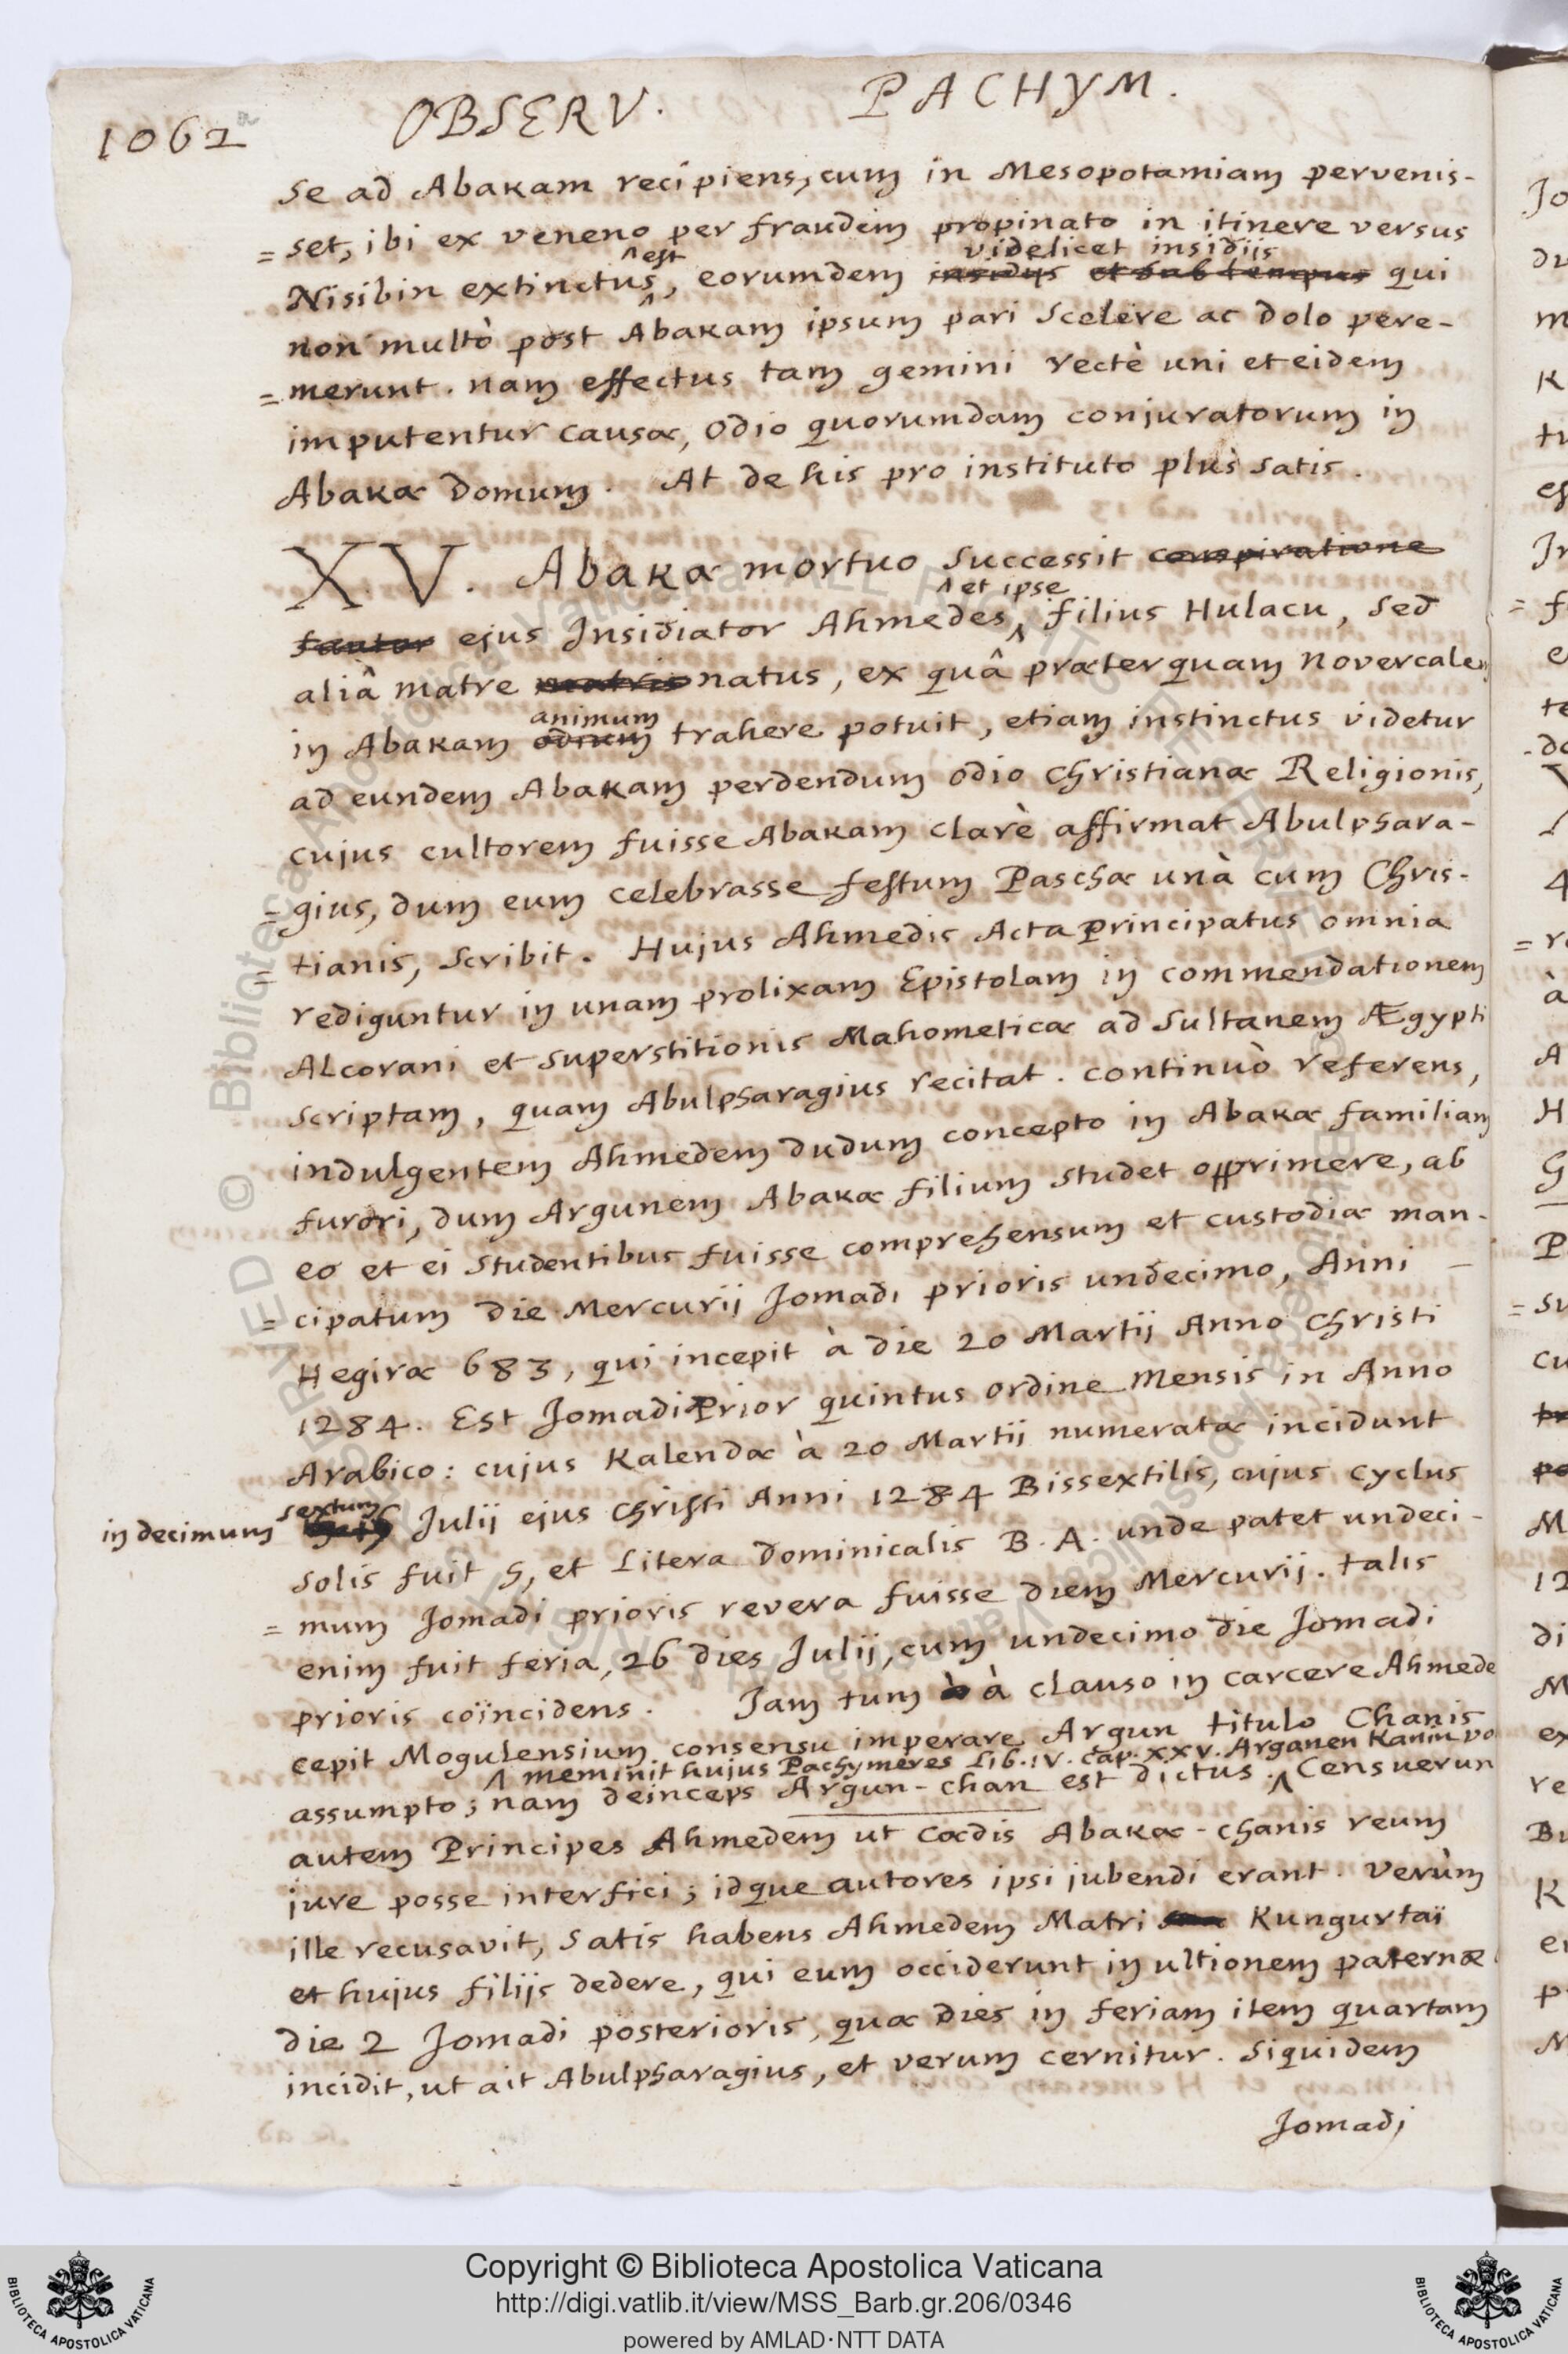 1062 a OBSERV. PACHYM.
se ad Abakam recipiens, cum in Mesopotamiam pervenis-
= set, ibi ex veneno per fraudem propinato in itinere versus
^est videlicet insidiis
Nisibin extinctus, eorumdem insidijs et sub tempus qui
non multò post Abakam ipsum pari scelere ac dolo pere-
= merunt. nam effectus tam gemini rectè uni et eidem
imputentur causæ, odio quorumdam conjuratorum in
Abakæ domum. At de his pro instituto plus satis.
XV. Abakæ mortuo successit conspiratione
^ et ipse
fautor ejus Insidiator Ahmedes, filius Hulacu, sed
aliâ matre matris natus, ex quâ præterquam novercalem
animum
in Abakam odium trahere potuit, etiam instinctus videtur
ad eundem Abakam perdendum odio Christianæ Religionis,
cujus cultorem fuisse Abakam clarè affirmat Abulphara-
= gius, dum eum celebrasse festum Paschæ unà cum Chris-
= tianis, scribit. Hujus Ahmedis Acta Principatus omnia
rediguntur in unam prolixam Epistolam in commendationem
Alcorani et superstitionis Mahometicæ ad Sultanem Ægypti
scriptam, quam Abulpharagius recitat. continuò referens,
indulgentem Ahmedem dudum concepto in Abakæ familiam
furori, dum Argunem Abakæ filium studet opprimere, ab
eo et ei studentibus fuisse comprehensum et custodiæ man-
= cipatum die Mercurij Jomadi prioris undecimo, Anni
Hegiræ 683, qui incepit à die 20 Martij Anno Christi
1284. Est Jomadi Prior quintus ordine Mensis in Anno
Arabico: cujus Kalendæ à 20 Martij numeratæ incidunt
sextum
in decimum Julij ejus Christi Anni 1284 Bissextilis, cujus cyclus
solis fuit 5, et Litera Dominicalis B. A. unde patet undeci-
= mum Jomadi prioris revera fuisse diem Mercurij. talis
enim fuit feria, 26 dies Julij, cum undecimo die Jomadi
prioris coïncidens. Jam tum à à clauso in carcere Ahmede
cepit Mogulensium consensu imperare Argun titulo Chanis
^ meminit hujus Pachymeres Lib. IV. cap. XXV. Arganen Kanim vo
assumpto; nam deinceps Argun-chan est dictus. ^ Censuerun
autem Principes Ahmedem ut cædis Abakæ-chanis reum
jure posse interfici; idque autores ipsi jubendi erant. Verùm
ille recusavit, satis habens Ahmedem Matri suæ Kungurtaï
et hujus filijs dedere, qui eum occiderunt in ultionem paternæ
die 2 Jomadi posterioris, quæ dies in feriam item quartam
incidit, ut ait Abulpharagius, et verum cernitur. Siquidem
Jomadi
Copyright © Biblioteca Apostolica Vaticana
http://digi.vatlib.it/view/MSS_Barb.gr.206/0346
powered by AMLAD·NTT DATA
BIBLIOTECA APOSTOLICA VATICANA
BIBLIOTECA APOSTOLICA VATICANA